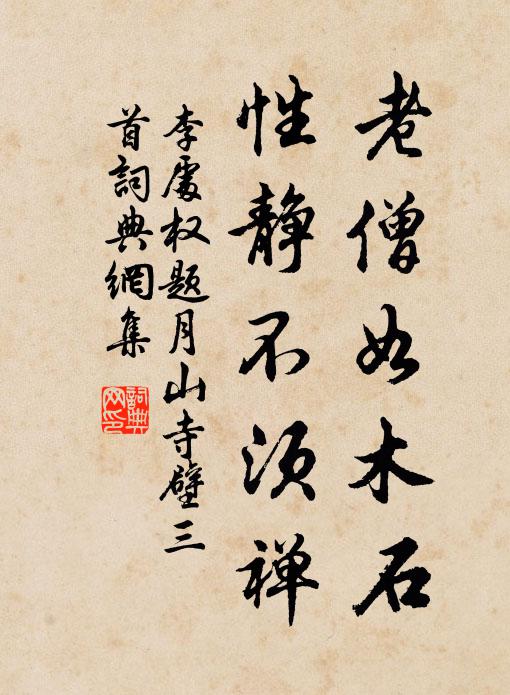 老僧如木石
性静不须禅
李處权题月山寺壁三
首詞典網集
詞典
网印